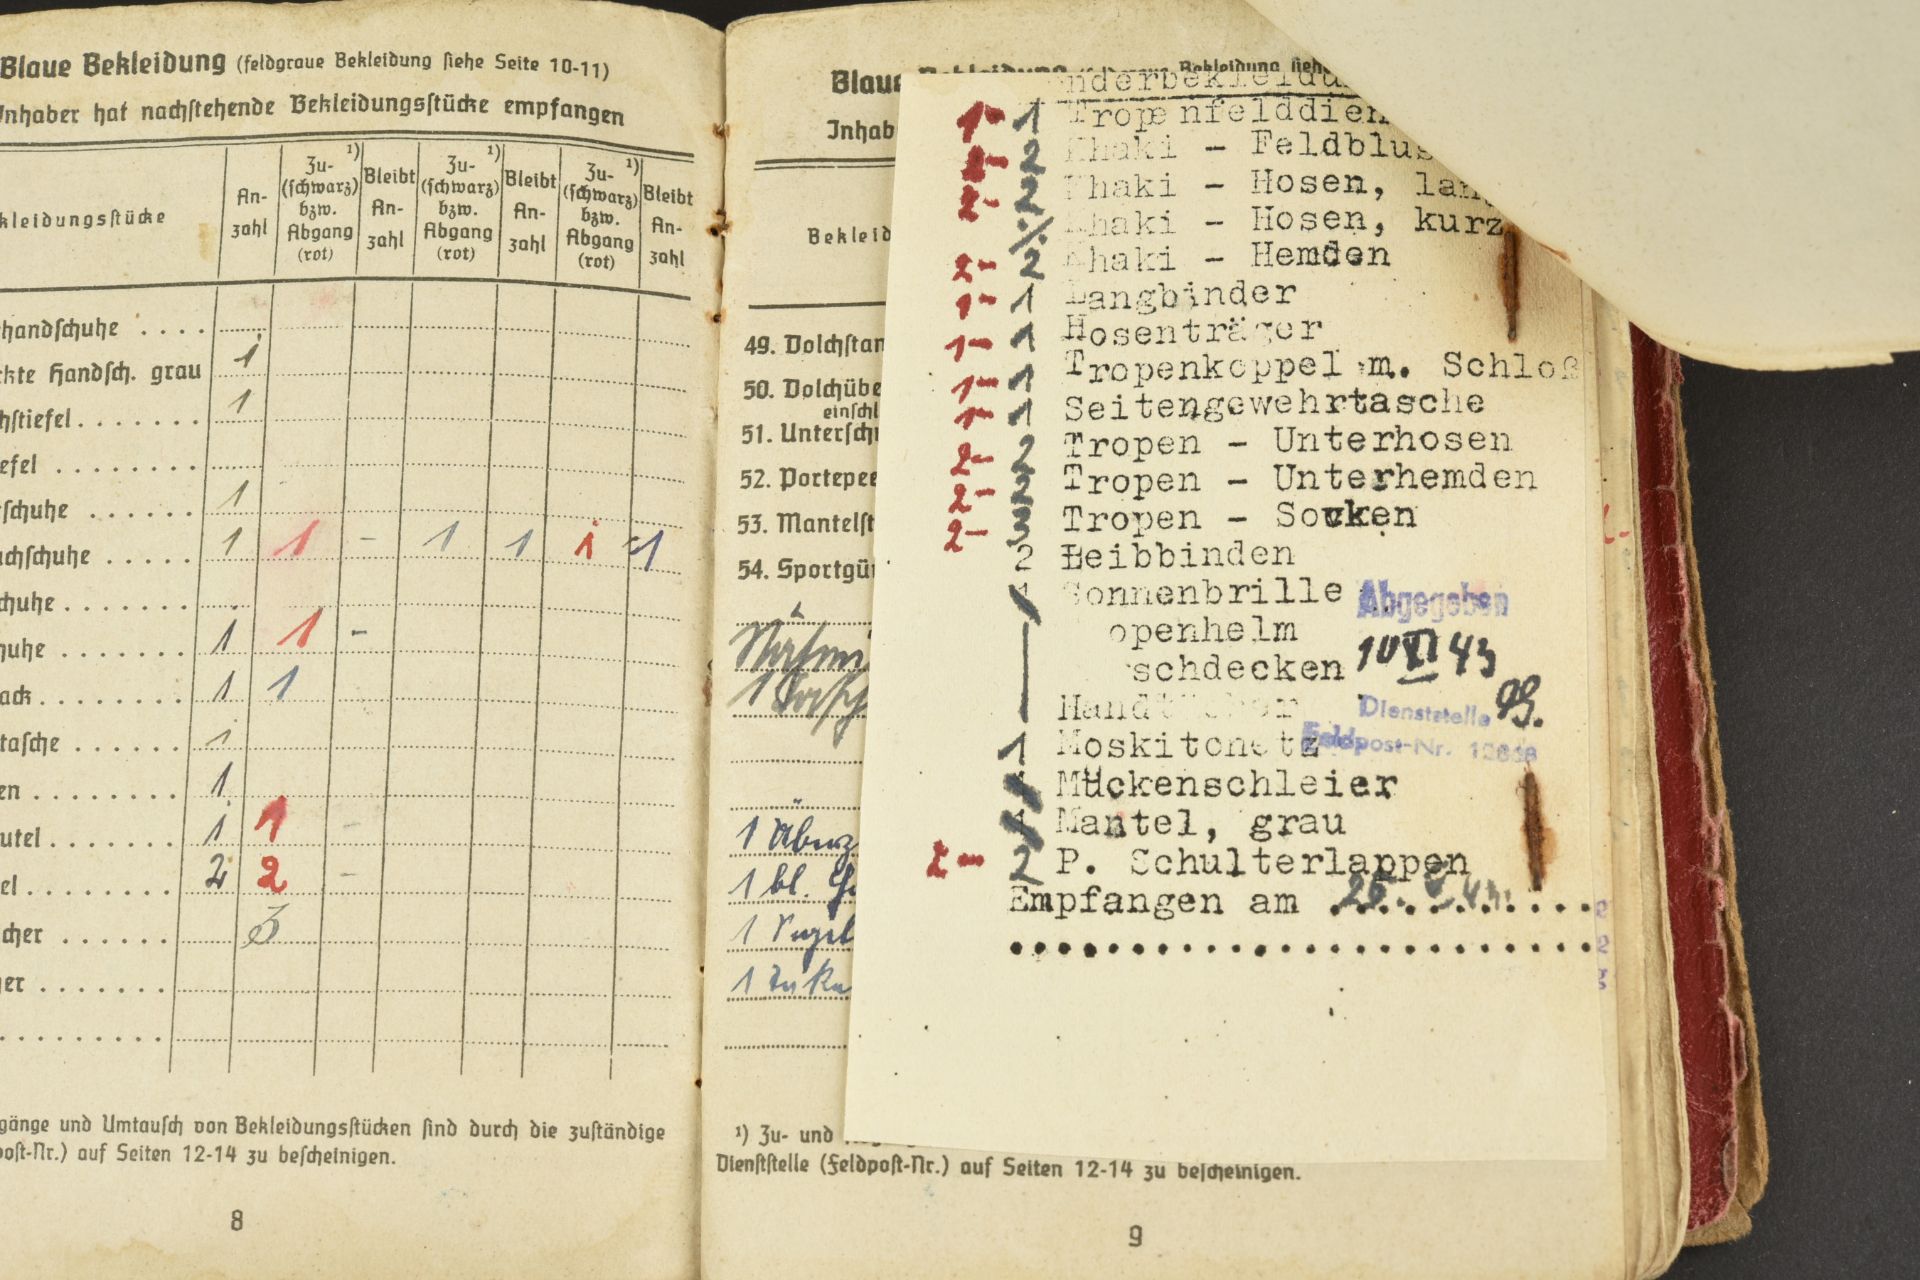 Blaue Bekleidung (feldgraue Bekleidung siehe Seite 10-11)
Inhaber hat nachstehende Bekleidungsstücke empfangen
kleidungsstücke
An-
zahl
Zu- ¹)
(schwarz)
bzw.
Abgang
(rot)
Bleibt
An-
zahl
Zu- ¹)
(schwarz)
bzw.
Abgang
(rot)
Bleibt
An-
zahl
Zu- ¹)
(schwarz)
bzw.
Abgang
(rot)
Bleibt
An-
zahl
handschuhe . . . .
kte Handsch. grau 1
hstiefel . . . . . . . 1
efel . . . . . . . .
schuhe . . . . . . 1
chschuhe . . . . . 1 1 - 1 1 1 -1
chuhe . . . . . . .
huhe . . . . . . . 1 1 -
ack . . . . . . . . 1 1
tasche . . . . . . 1
en . . . . . . . . 1
utel . . . . . . . 1 1 -
el . . . . . . . . 2 2 -
cher . . . . . . 3
er . . . . . . .
gänge und Umtausch von Bekleidungsstücken sind durch die zuständige
post-Nr.) auf Seiten 12-14 zu bescheinigen.
8
Blaue Bekleidung Bekleidung siehe
Inhab
Bekleid
49. Dolchstan
50. Dolchübe
einschl
51. Unterschn
52. Portepee
53. Mantelst
54. Sportgür
1
1 bl.
1
1
¹) Zu- und
Dienststelle (Feldpost-Nr.) auf Seiten 12-14 zu bescheinigen.
9
nderbekleidu
1- 1 Tropenfelddien
2 Khaki - Feldblus
2- 2 Khaki - Hosen, lan
./. Khaki - Hosen, kurz
2- 2 Khaki - Hemden
1- 1 Langbinder
1- 1 Hosenträger
1- 1 Tropenkoppel m. Schloß
1- 1 Seitengewehrtasche
2- 2 Tropen - Unterhosen
2- 2 Tropen - Unterhemden
2- 3 Tropen - Socken
2 Leibbinden
Sonnenbrille
openhelm
schdecken
Handtücher
1 Moskitonetz
Mückenschleier
Mantel, grau
2- 2 P. Schulterlappen
Empfangen am 25. V. 43.
Abgegeben
10 VI 43
Dienststelle
Feldpost-Nr.